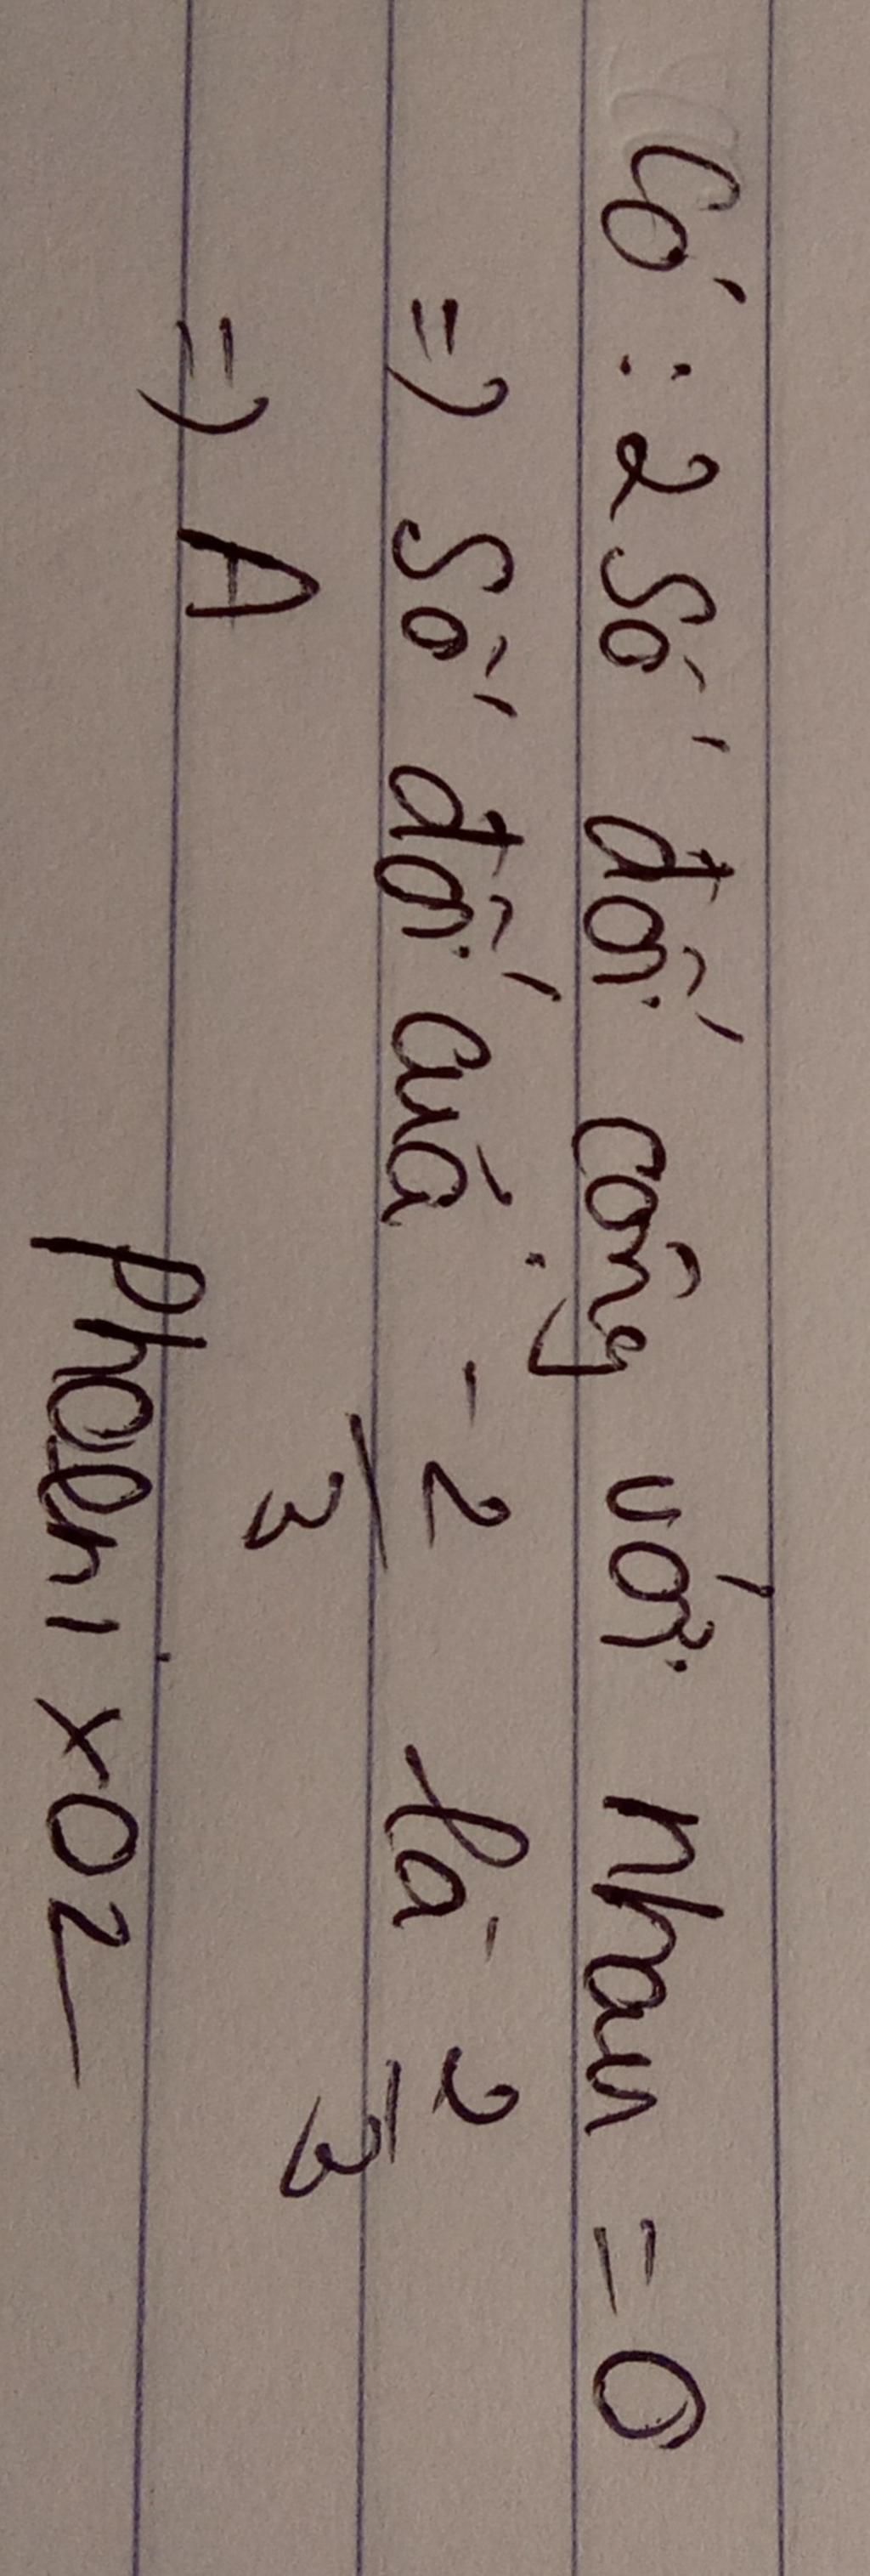 Có : 2 số đối cộng với nhau = 0
=> Số đối của -2/3 là 2/3
=> A
Phoenix02